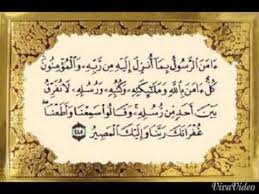 ءَامَنَ ٱلرَّسُولُ بِمَآ أُنزِلَ إِلَيْهِ مِن رَّبِّهِۦ وَٱلْمُؤْمِنُونَ
كُلٌّ ءَامَنَ بِٱللَّهِ وَمَلَٰٓئِكَتِهِۦ وَكُتُبِهِۦ وَرُسُلِهِۦ لَا نُفَرِّقُ
بَيْنَ أَحَدٍ مِّن رُّسُلِهِۦ وَقَالُوا۟ سَمِعْنَا وَأَطَعْنَا
غُفْرَانَكَ رَبَّنَا وَإِلَيْكَ ٱلْمَصِيرُ ٢٨٥
VivaVideo